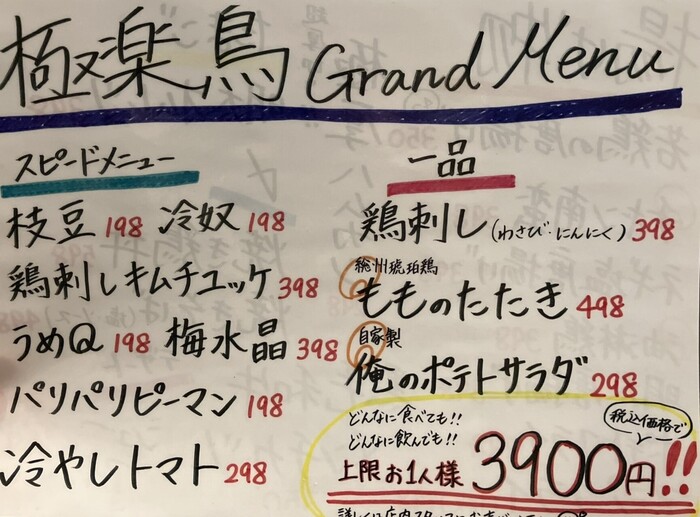 極楽鳥 Grand Menu
スピードメニュー
枝豆 198 冷奴 198
鶏刺しキムチユッケ 398
うめQ 198 梅水晶 398
パリパリピーマン 198
冷やしトマト 298
一品
鶏刺し(わさび・にんにく) 398
総州琥珀鶏
もものたたき 498
自家製
俺のポテトサラダ 298
どんなに食べても!!
どんなに飲んでも!!
税込価格で
上限お1人様 3900円!!